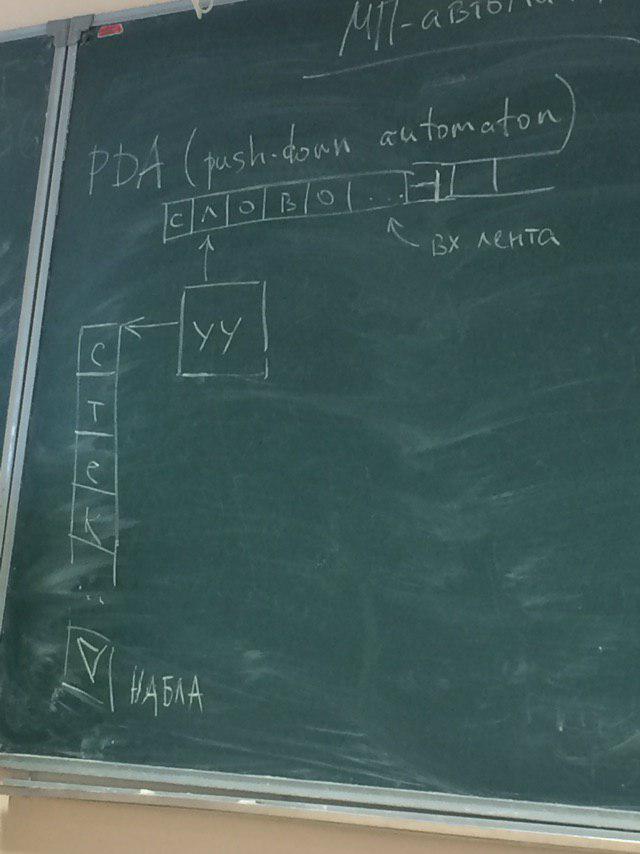 МП-автома
PDA (push-down automaton)
С Л О В О ...
вх лента
УУ
С
т
е
к
...
∇ НАБЛА